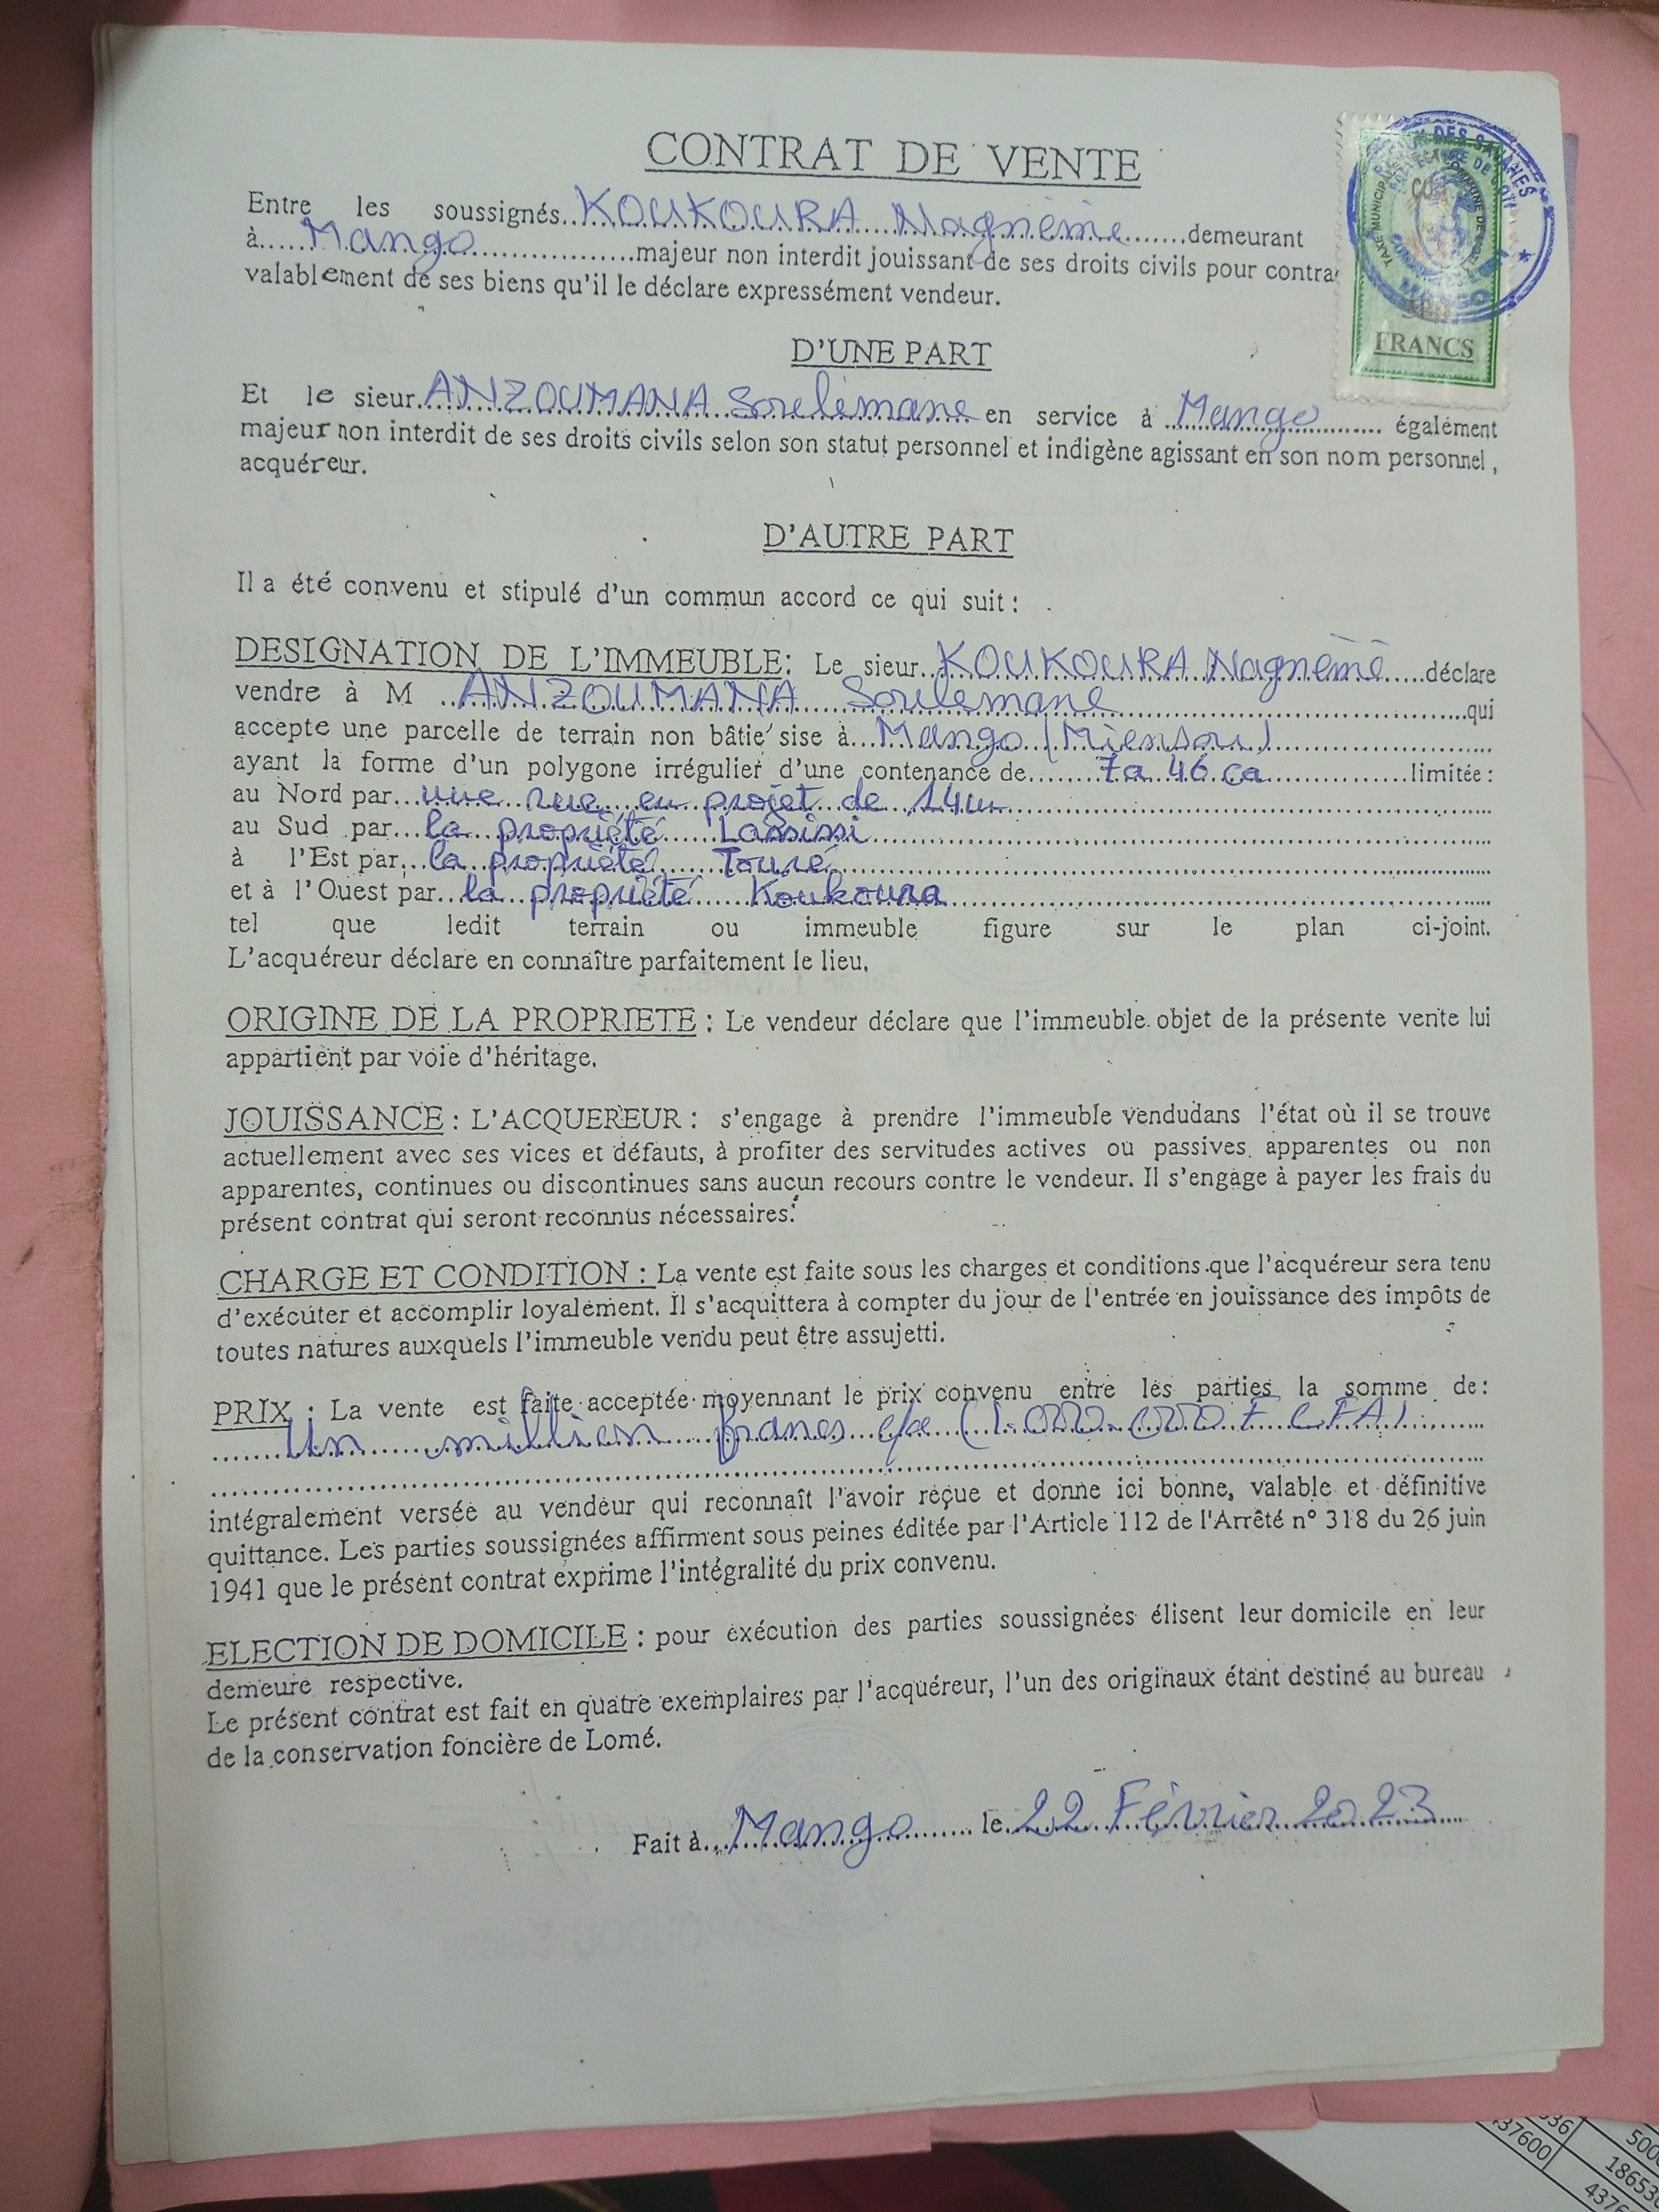 CONTRAT DE VENTE
Entre les soussignés..KOUKOURA Nagnème.......demeurant
à.....Mango..................majeur non interdit jouissant de ses droits civils pour contra
valablement de ses biens qu'il le déclare expressément vendeur.
FRANCS
D'UNE PART
Et le sieur.ANZOUMANA Soulemane en service à Mango également
majeur non interdit de ses droits civils selon son statut personnel et indigène agissant en son nom personnel,
acquéreur.
D'AUTRE PART
Il a été convenu et stipulé d'un commun accord ce qui suit :
DESIGNATION DE L'IMMEUBLE: Le sieur..KOUKOURA Nagnème.....déclare
vendre à M ..ANZOUMANA Soulemane..........qui
accepte une parcelle de terrain non bâtie sise à...Mango (Miensou)..........
ayant la forme d'un polygone irrégulier d'une contenance de......7a 46 ca..........limitée :
au Nord par...une rue en projet de 14m..........
au Sud par...la propriété Lassissi..........
à l'Est par...la propriété Touré..........
et à l'Ouest par...la propriété Koukoura..........
tel que ledit terrain ou immeuble figure sur le plan ci-joint.
L'acquéreur déclare en connaître parfaitement le lieu.
ORIGINE DE LA PROPRIETE : Le vendeur déclare que l'immeuble objet de la présente vente lui
appartient par voie d'héritage.
JOUISSANCE : L'ACQUEREUR : s'engage à prendre l'immeuble vendudans l'état où il se trouve
actuellement avec ses vices et défauts, à profiter des servitudes actives ou passives apparentes ou non
apparentes, continues ou discontinues sans aucun recours contre le vendeur. Il s'engage à payer les frais du
présent contrat qui seront reconnus nécessaires.
CHARGE ET CONDITION : La vente est faite sous les charges et conditions que l'acquéreur sera tenu
d'exécuter et accomplir loyalement. Il s'acquittera à compter du jour de l'entrée en jouissance des impôts de
toutes natures auxquels l'immeuble vendu peut être assujetti.
PRIX : La vente est faite acceptée moyennant le prix convenu entre les parties la somme de :
.......Un million francs cfa (1.000.000 F CFA)..........
intégralement versée au vendeur qui reconnaît l'avoir reçue et donne ici bonne, valable et définitive
quittance. Les parties soussignées affirment sous peines éditée par l'Article 112 de l'Arrêté n° 318 du 26 juin
1941 que le présent contrat exprime l'intégralité du prix convenu.
ELECTION DE DOMICILE : pour exécution des parties soussignées élisent leur domicile en leur
demeure respective.
Le présent contrat est fait en quatre exemplaires par l'acquéreur, l'un des originaux étant destiné au bureau
de la conservation foncière de Lomé.
Fait à...Mango.......... le 22 Février 2023
37600